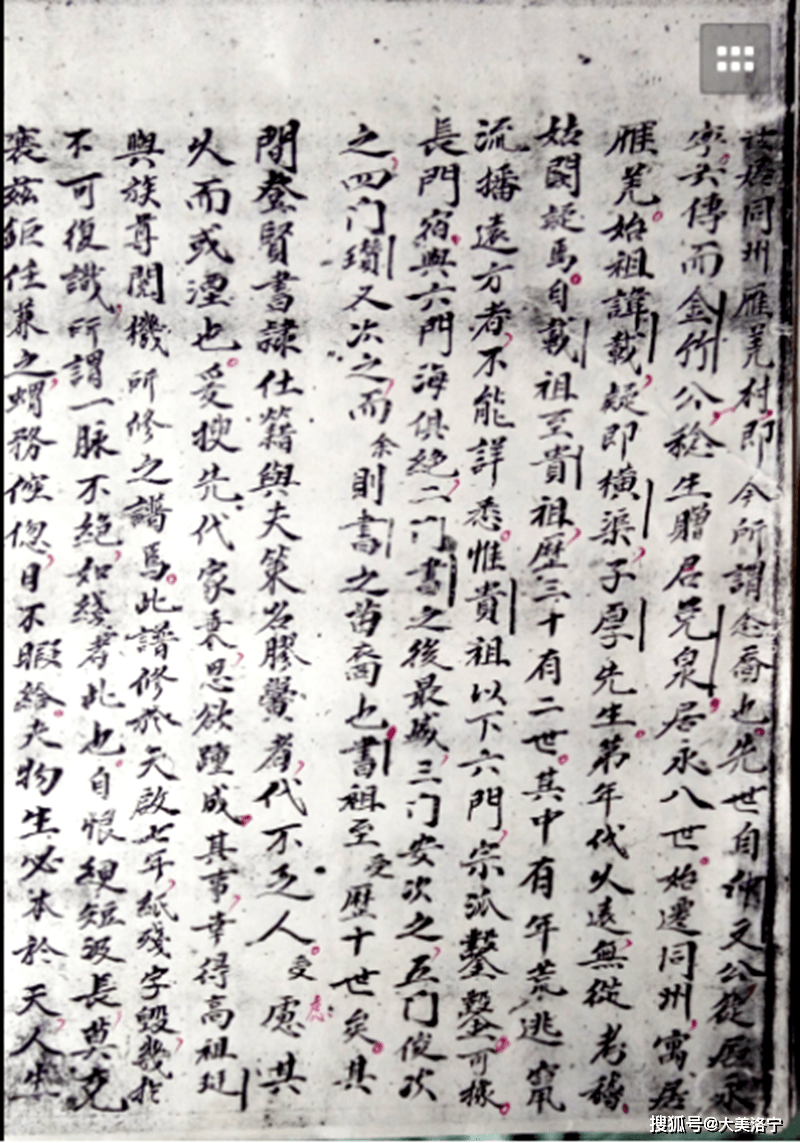 同州雁羌村即今所謂念喬也先世自仲文公從居永
寧六傳而金竹公稔生贈君莞泉居永八世始遷同州寓居
雁羌始祖諱載疑即橫渠子厚先生第年代久遠無從考稽
姑闕疑焉自載祖至貴祖歷三十有二世其中有年荒逃竄
流播遠方者不能詳悉惟貴祖以下六門宗派鑿鑿可據
長門宿與六門海俱絕二門書之後最盛三門安次之五門俊次
之四门瓚又次之而余則書之苗裔也書祖至受歷十世矣其
間登賢書隸仕籍與夫策名膠黌者代不乏人受慮其
久而或湮也爰搜先代家乘思欲踵成其事幸得高祖廷
與族尊閣機所修之譜焉此譜修於天啟七年紙殘字毀幾於
不可復識所謂一脉不絕如綫者此也自恨綆短汲長莫克
褱茲鉅任兼之蝟務倥偬日不暇給夫物生必本於天人生
搜狐号@大美洛宁